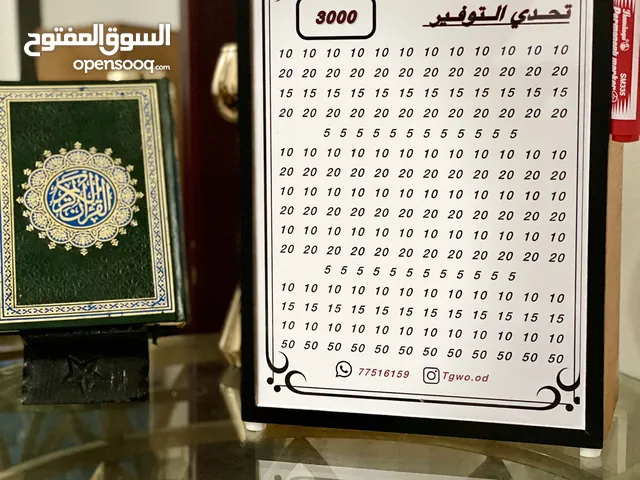 السوق المفتوح
opensooq.com
القرآن الكريم
3000
تحدي التوفير
10 10 10 10 10 10 10 10 10 10 10 10
20 20 20 20 20 20 20 20 20 20 20 20
15 15 15 15 15 15 15 15 15 15 15 15
20 20 20 20 20 20 20 20 20 20 20 20
5 5 5 5 5 5 5 5 5 5 5 5
10 10 10 10 10 10 10 10 10 10 10 10
20 20 20 20 20 20 20 20 20 20 20 20
10 10 10 10 10 10 10 10 10 10 10 10
20 20 20 20 20 20 20 20 20 20 20 20
10 10 10 10 10 10 10 10 10 10 10 10
20 20 20 20 20 20 20 20 20 20 20 20
5 5 5 5 5 5 5 5 5 5 5 5
10 10 10 10 10 10 10 10 10 10 10 10
15 15 15 15 15 15 15 15 15 15 15 15
10 10 10 10 10 10 10 10 10 10 10 10
50 50 50 50 50 50 50 50 50 50 50 50
77516159 Tgwo.od
SM335